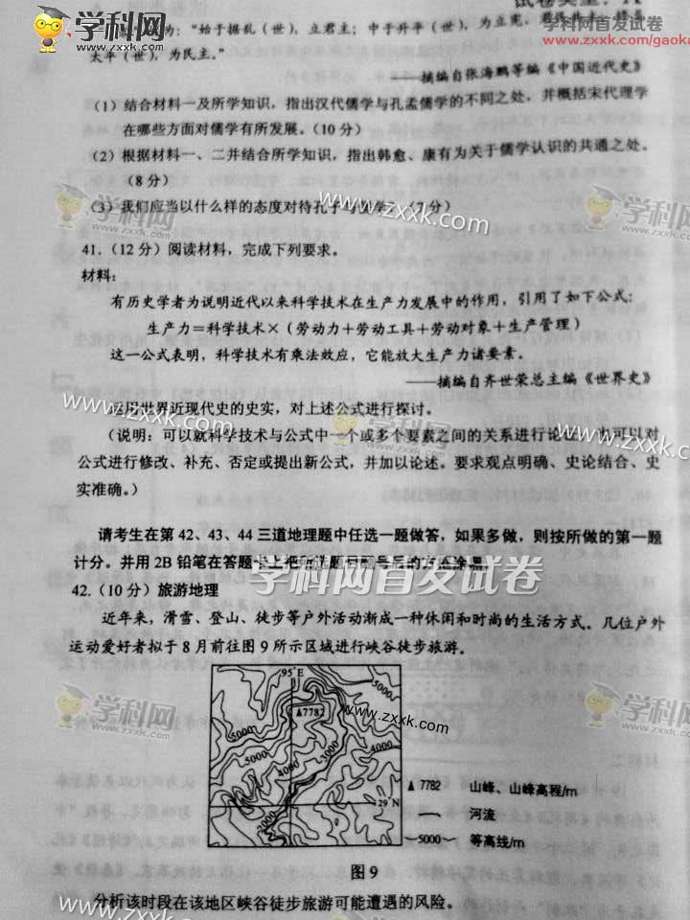 学科网首发试卷
www.zxxk.com/gaoka
学科网
zxxk.com
为：“始于据乱（世），立君主；中于升平（世），为立宪，
太平（世），为民主。”
——摘编自张海鹏等编《中国近代史》
（1）结合材料一及所学知识，指出汉代儒学与孔孟儒学的不同之处，并概括宋代理学
在哪些方面对儒学有所发展。（10 分）
（2）根据材料一、二并结合所学知识，指出韩愈、康有为关于儒学认识的共通之处。
（8 分）
（3）我们应当以什么样的态度对待孔子与儒学？（7 分）
www.zxxk.com
学科网
zxxk.com
41.（12 分）阅读材料，完成下列要求。
材料：
有历史学者为说明近代以来科学技术在生产力发展中的作用，引用了如下公式：
生产力＝科学技术×（劳动力＋劳动工具＋劳动对象＋生产管理）
这一公式表明，科学技术有乘法效应，它能放大生产力诸要素。
——摘编自齐世荣总主编《世界史》
学科网
zxxk.com
www.zxxk.com
运用世界近现代史的史实，对上述公式进行探讨。
（说明：可以就科学技术与公式中一个或多个要素之间的关系进行论证，也可以对
公式进行修改、补充、否定或提出新公式，并加以论述。要求观点明确、史论结合、史
实准确。）
www.zxxk.com
请考生在第 42、43、44 三道地理题中任选一题做答，如果多做，则按所做的第一题
计分。并用 2B 铅笔在答题卡上把所选题目题号后的方框涂黑。
学科网首发试卷
42.（10 分）旅游地理
近年来，滑雪、登山、徒步等户外活动渐成一种休闲和时尚的生活方式。几位户外
运动爱好者拟于 8 月前往图 9 所示区域进行峡谷徒步旅游。
学科网
zxxk.com
www.zxxk.com
95°E
5000
▲7782
5000
5000
4000
3000
4000
29°N
2000
▲ 7782 山峰、山峰高程/m
河流
5000 等高线/m
图 9
分析该时段在该地区峡谷徒步旅游可能遭遇的风险。